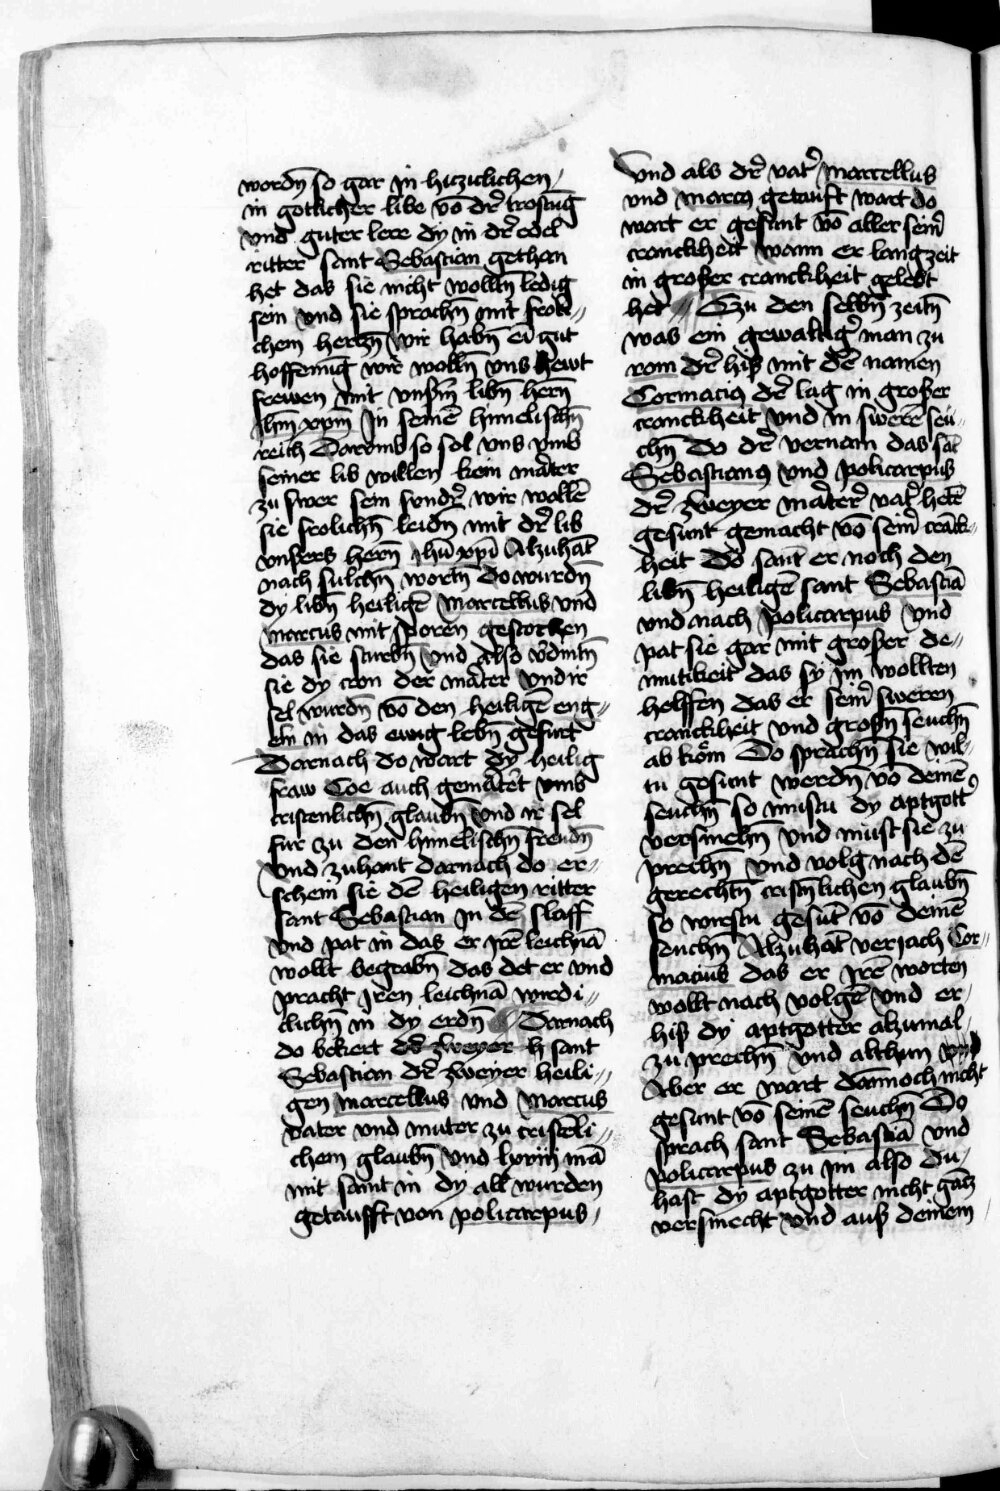 wordn̄ so gar in hiczclichen
in gotlicher libe vō dr̄ trostūg
vnd guter lere dy in dr̄ edel
ritter sant Sebastian gethan
het das sie nicht wolltn̄ ledig
sein vnd sie sprachn̄ mit froli//
chem hertzn̄ wir habn̄ ei gut
hoffenūg wir wolln̄ vns hewt
frewen mit vnsm̄ libn̄ hern̄
ihm̄ xpm̄ in seinē himelischn̄
reich Darvmb so sol vns vmb
seiner lib willen kein mārter
zu swer sein sundr̄ wir wollē
sie frolichn̄ leidn̄ mit dr̄ lib
vnsers hern̄ ihū xpī Alzuhāt
nach sulchn̄ wortn̄ do wurdn̄
dy libn̄ heiligē Marcellus vnd
Marcus mit sporen gestochen
das sie sturbn̄ vnd also v̄dintn̄
sie dy cron der marter vnd ir
sel wurdn̄ vō den heiligē eng//
eln in das ewig lebn̄ gefurt
Darnach do wart dy heilig
fraw Coe auch gemartēt vmb
cristenlichn̄ glaubn̄ vnd ir sel
fur zu den himelischn̄ freudn̄
vnd zuhant darnach do er//
schein sie dē heiligen ritter
sant Sebastian in dē slaff
vnd pat in das er irē leichnā
wollt begrabn̄ das det er vnd
pracht iren leichnā wirdi//
clichn̄ in dy erdn̄ Darnach
do bekert dr̄ zweyer h sant
Sebastian dr̄ zweyer heili//
gen Marcellus vnd Marcus
vater vnd muter zu cristēli//
chem glaubn̄ vnd lxviii mā
mit samt in dy all wurden
getaufft von policarpus
Vnd als dr̄ vat̄ Marcellus
vnd Marcꝰ getauft wart do
wart er gesunt vō aller sein̄
cranckheit wann er langzeit
in großer cranckheit gelebt
het Czu den selbn̄ zeitn̄
was ein gewaltiḡ man zu
rom dr̄ hiß mit dē namen
Cormaciꝰ dr̄ lag in großer
cranckheit vnd in swerē seu
chn̄ Do dr̄ vernam das sāt
Sebastianꝰ vnd policarpus
dr̄ zweyer martēr̄ vat̄ hetē
gesunt gemacht vō sein̄ crāck
heit Do sant er noch den
libn̄ heiligē sant Sebastiā
vnd nach policarpus vnd
pat sie gar mit großer de//
mutikeit das sy im wollten
helffen das er sein̄ sweren
cranckheit vnd grosn̄ seuchn̄
ab köm Do sprachn̄ sie wil
tu gesunt werdn̄ vō deinē
seuchn̄ so mustu dy aptgottꝰ
versmehn̄ vnd must sie zu
prechn̄ vnd volg nach dē
gerechtn̄ cristn̄lichen glaubn̄
so wirstu gesūt vō deinē
seuchn̄ Alzuhāt verjach Cor//
macius das er irē worten
wollt nach volgē vnd er
hiß dy aptgotter alzumal
zu prechn̄ vnd althun
Aber er wart dannoch nicht
gesunt vō seinē seuchn̄ Do
sprach sant Sebastiā vnd
policarpus zu im also du
hast dy aptgotter nicht gātz
versmecht vnd auß deinem